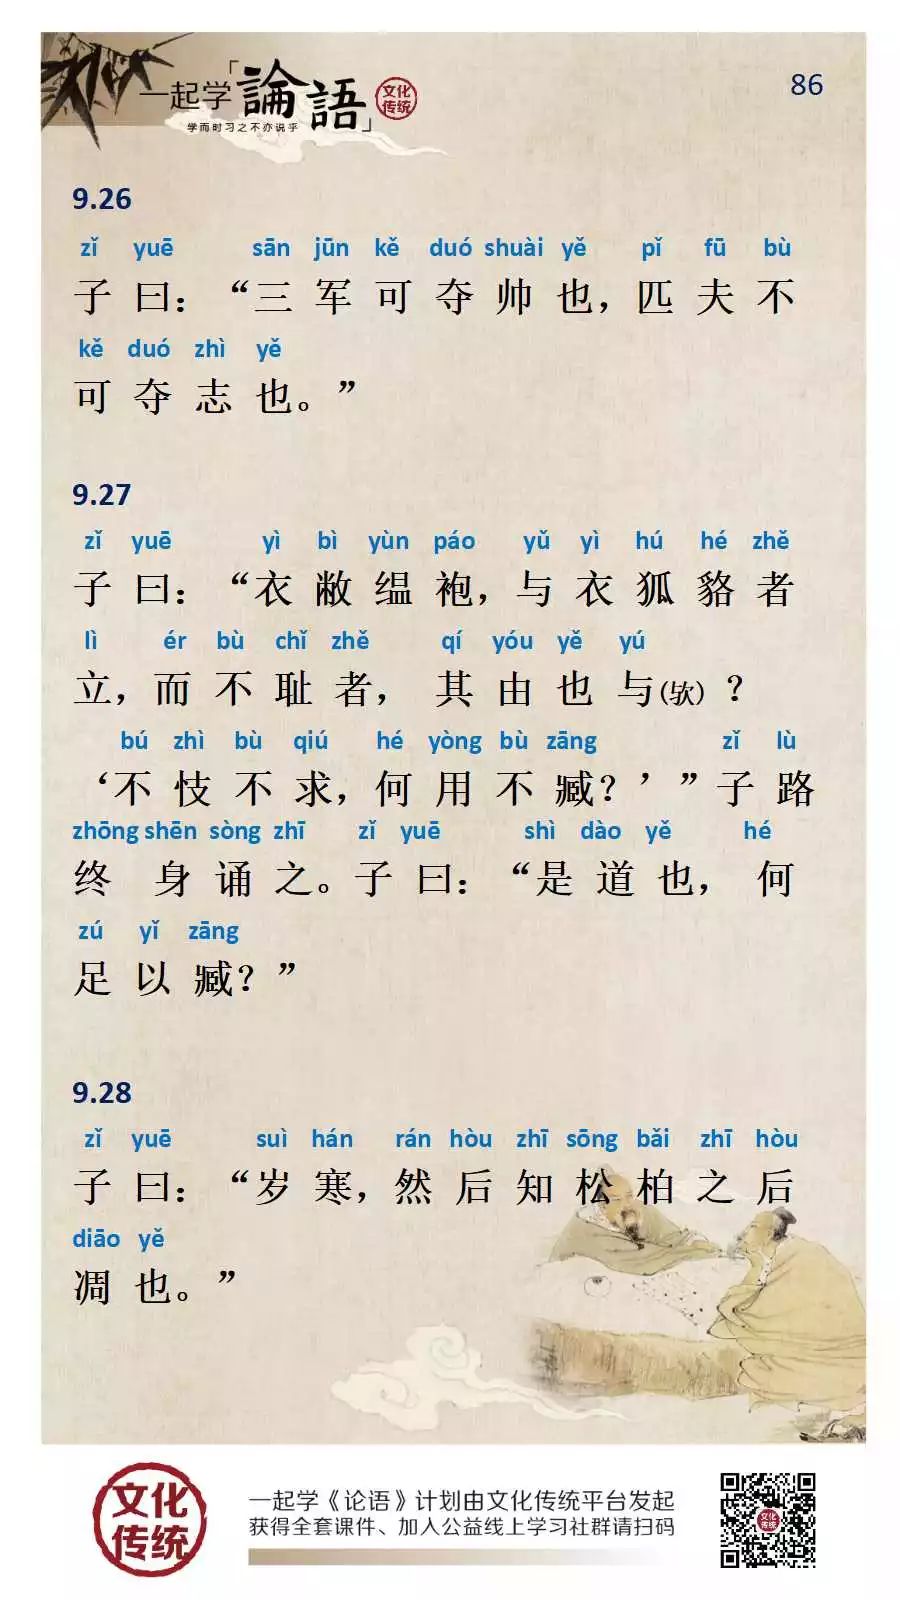 一起学「論語」
文化
传统
学而时习之不亦说乎
86
9.26
zǐ yuē sān jūn kě duó shuài yě pǐ fū bù
子曰：“三军可夺帅也，匹夫不
kě duó zhì yě
可夺志也。”
9.27
zǐ yuē yì bì yùn páo yǔ yì hú hé zhě
子曰：“衣敝缊袍，与衣狐貉者
lì ér bù chǐ zhě qí yóu yě yú
立，而不耻者，其由也与(欤)？
bú zhì bù qiú hé yòng bù zāng zǐ lù
‘不忮不求，何用不臧？’”子路
zhōng shēn sòng zhī zǐ yuē shì dào yě hé
终身诵之。子曰：“是道也，何
zú yǐ zāng
足以臧？”
9.28
zǐ yuē suì hán rán hòu zhī sōng bǎi zhī hòu
子曰：“岁寒，然后知松柏之后
diāo yě
凋也。”
文化
传统
一起学《论语》计划由文化传统平台发起
获得全套课件、加入公益线上学习社群请扫码
文化
传统